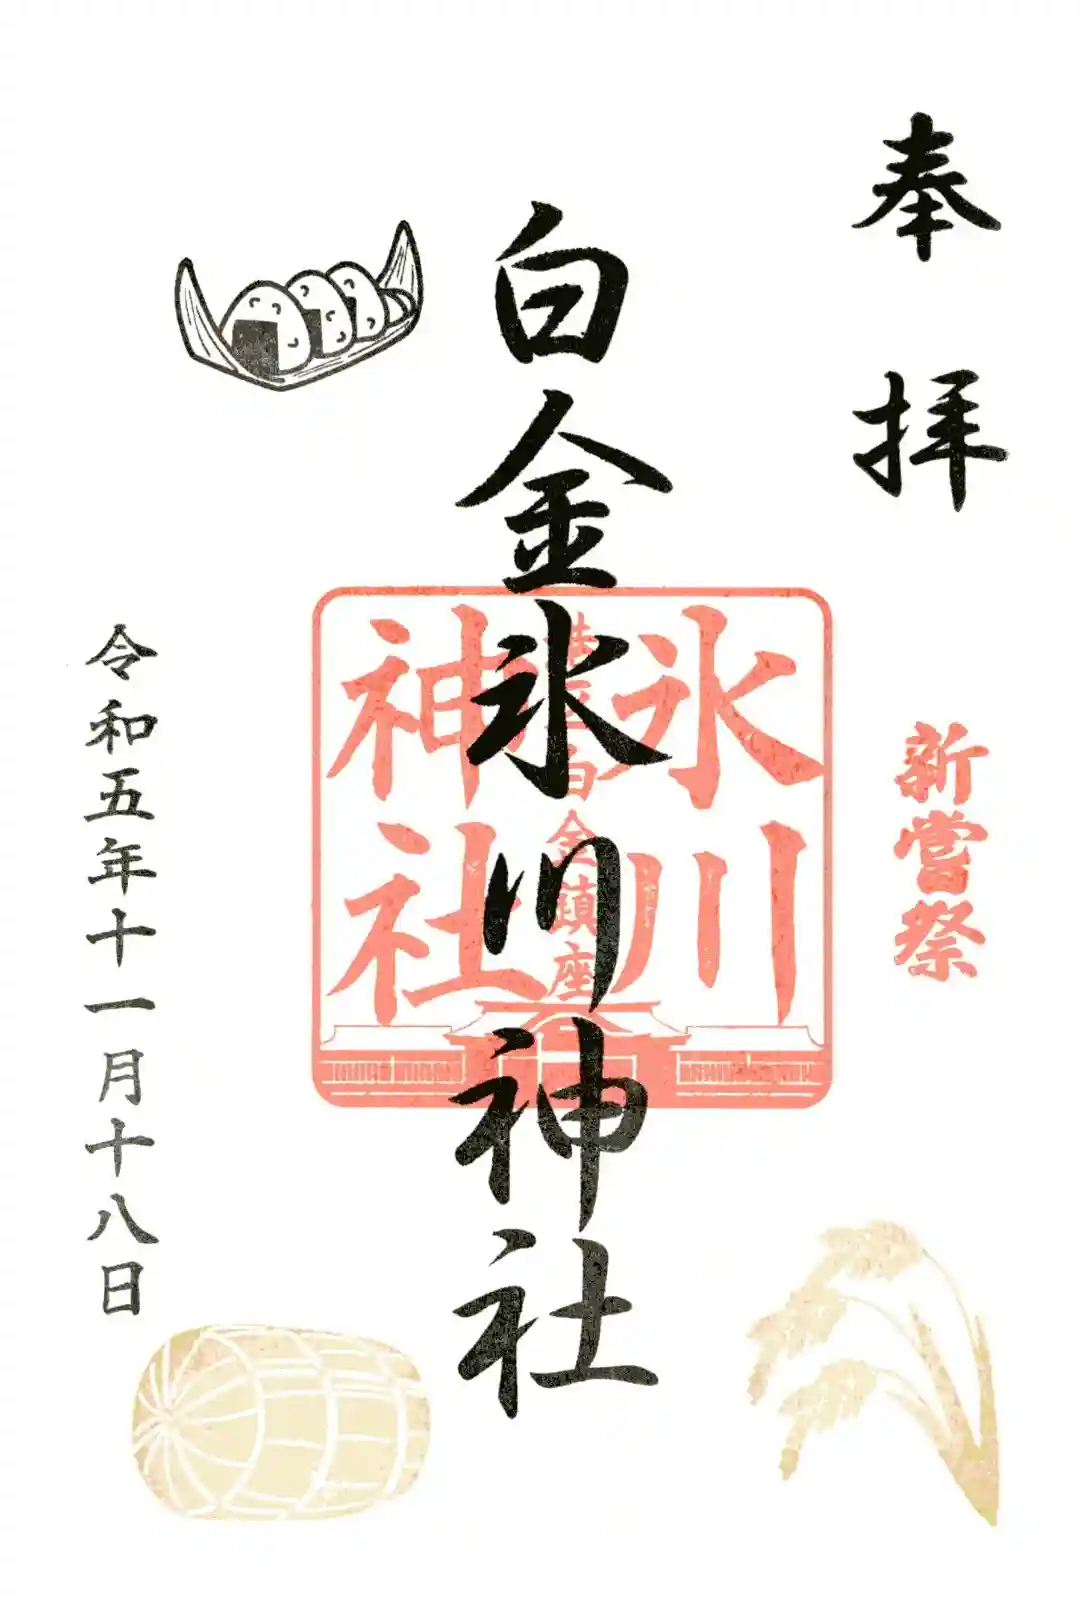 奉拝
新嘗祭
白金氷川神社
氷川
神社
白金鎮座
令和五年十一月十八日